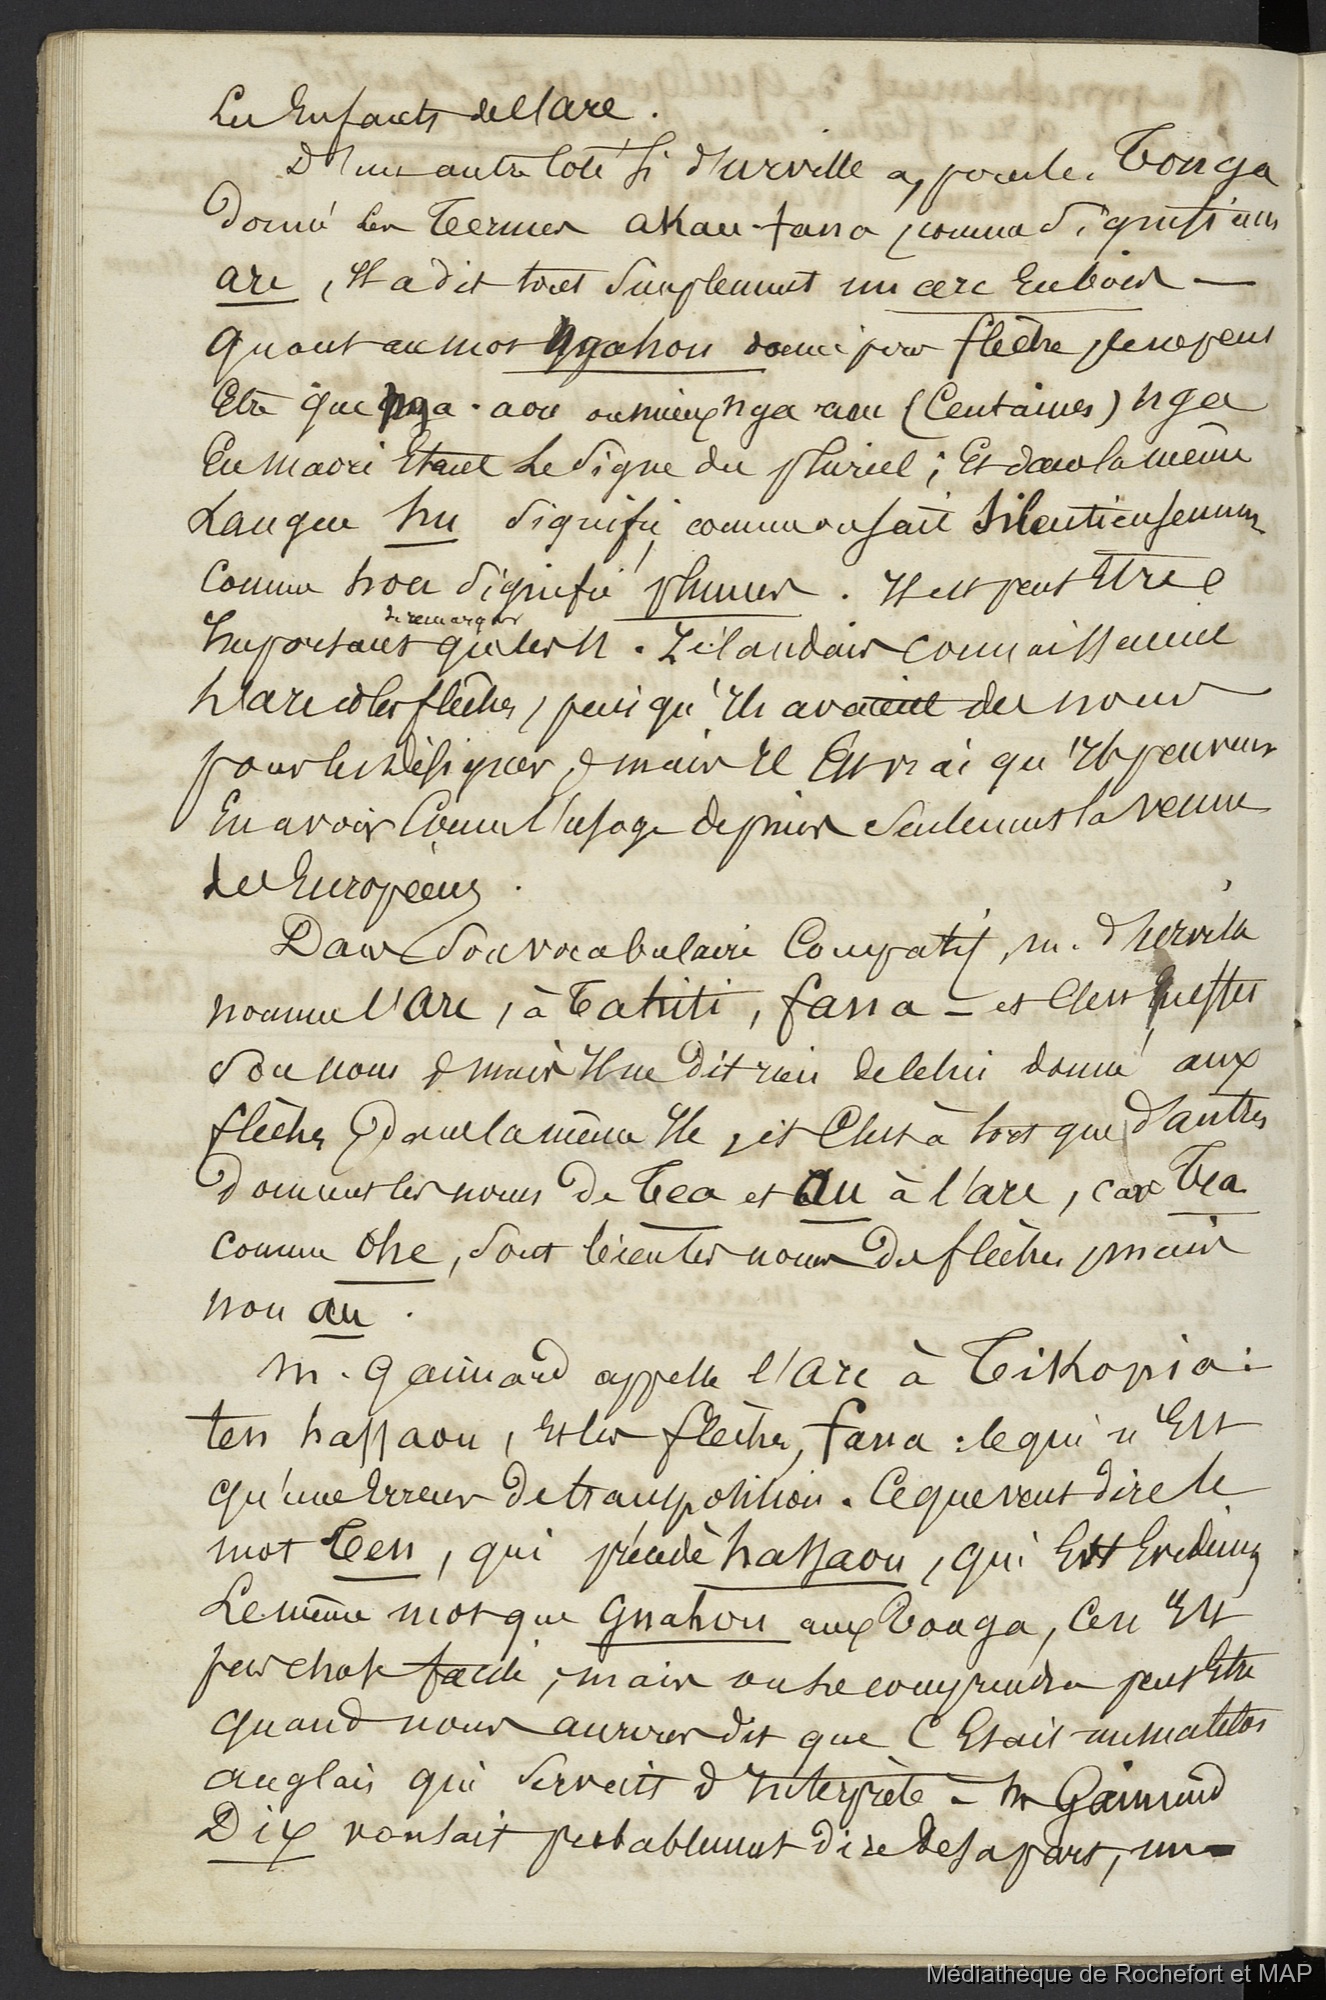 les Enfants de l'arc.
D'un autre côté si d'Urville a, pour les Tonga
donné les termes akau-fana, comme signifiant
arc, il a dit tout simplement un arc en bois —
quant au mot Ngahou donné pour flèche, ce ne peut
être que nga-aou ou mieux nga-au (Centaines) nga
en maori étant le signe du pluriel ; et dans la même
langue hu signifie, comme on sait silencieusement
comme hou signifie plumes. Il est peut être
de remarquer
important que les N. Zélandais connaissaient
l'arc et les flèches, puisqu'ils avaient des noms
pour les désigner, mais il est vrai qu'ils peuvent
en avoir connu l'usage depuis seulement la venue
des Européens.
Dans son vocabulaire Comparatif, m. d'Urville
nomme l'arc, à Tahiti, fana — et c'est
son nom, mais il ne dit rien de celui donné aux
flèches dans la même île, et c'est à tort que d'autres
donnent les noms de Tea et au à l'arc, car Tea
comme ohe, sont bien les noms des flèches, mais
non au.
m. Gaimard appelle l'arc à Tikopia :
ten hassaou, et les flèches, fana : ce qui n'est
qu'une erreur de transposition. Ce que veut dire le
mot Ten, qui précède hassaou, qui est Evidemt
le même mot que gnahou aux Tonga, ce n'est
pas chose facile, mais on le comprendra peut être
quand nous aurons dit que c'était un matelot
anglais qui servait d'Interprète — M Gaimard
Dix voulait probablement dire de sa part, un
Médiathèque de Rochefort et MAP